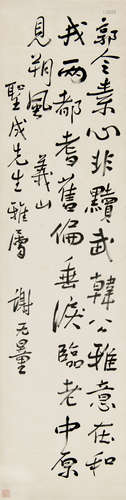 郭令素心非黷武韓公雅意在和
戎兩都耆舊偏垂淚臨老中原
見朔風　義山
聖成先生雅屬　謝无量